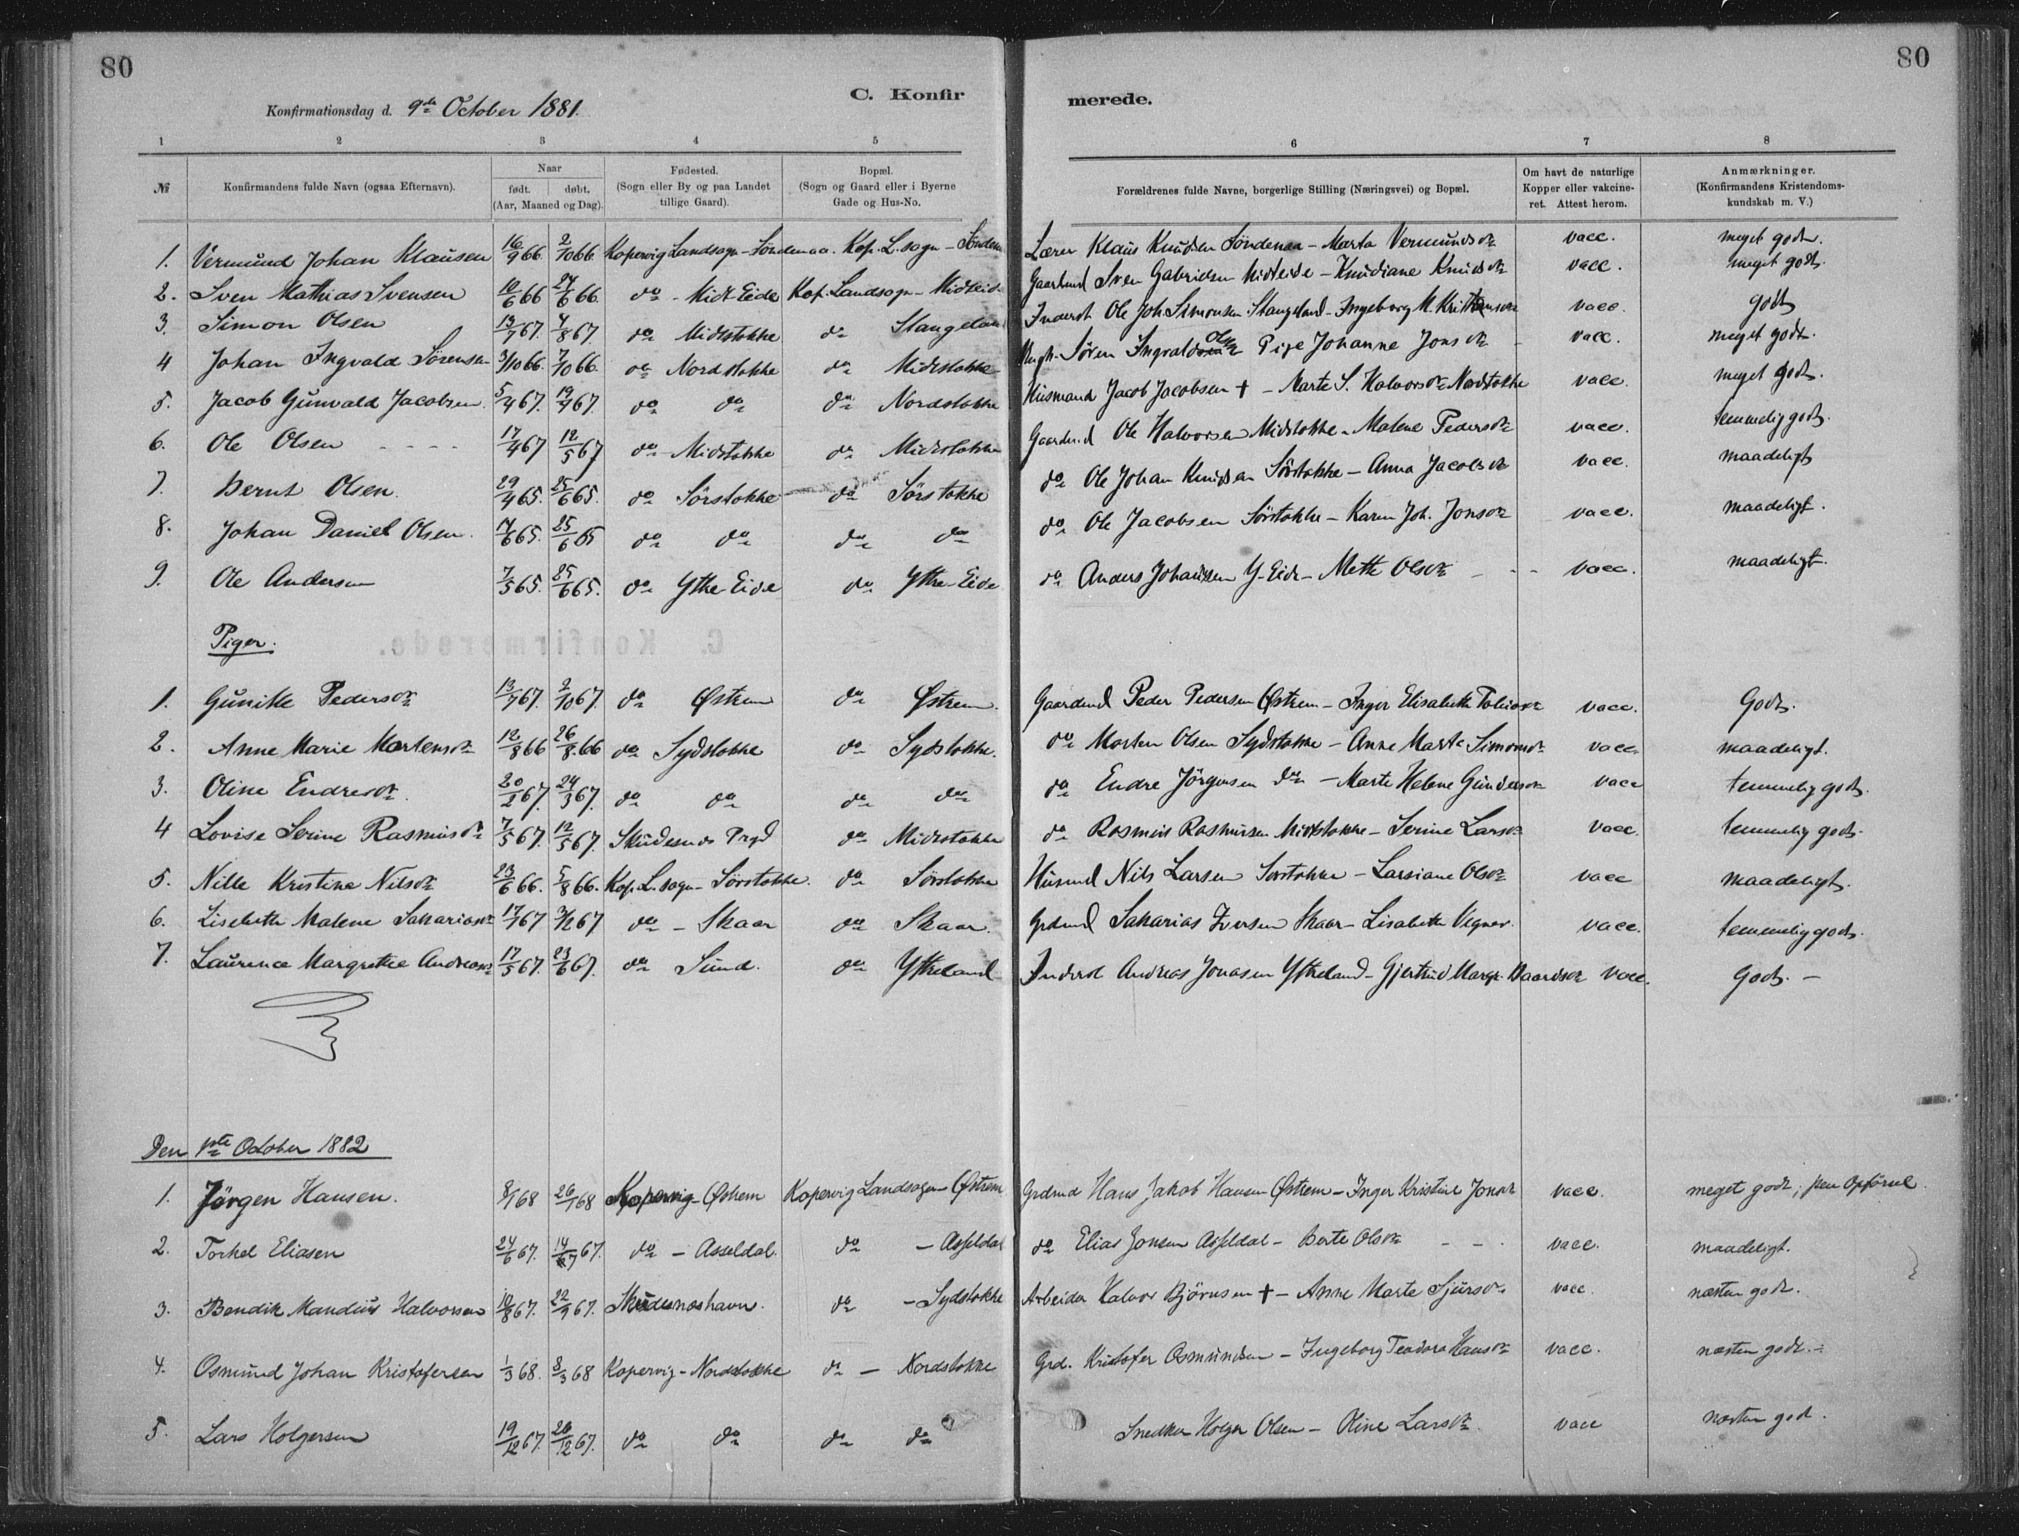 80
80
Konfirmationsdag d. 9de October 1881.
C. Konfir
merede.
1 2 3 4 5 6 7 8
№ Konfirmandens fulde Navn (ogsaa Efternavn). Naar født. døbt. (Aar, Maaned og Dag). Fødested. (Sogn eller By og paa Landet tillige Gaard). Bopæl. (Sogn og Gaard eller i Byerne Gade og Hus-No. Forældrenes fulde Navne, borgerlige Stilling (Næringsvei) og Bopæl. Om havt de naturlige Kopper eller vakcineret. Attest herom. Anmærkninger. (Konfirmandens Kristendomskundskab m. V.)
1. Vermund Johan Klausen 16/9 66 2/10 66 Kopervig Landsogn - Søndenaa. Kop. L. sogn - Lærer Klaus Knudsen Søndenaa - Marta Vermundsdr vacc. meget godt.
2. Sven Mathias Svensen 10/6 66 24/6 66. do - Midt-Eide Kop. Landsogn - Gaardmd Sven Gabrielsen Midteide - Knudiane Knudsdr vacc. meget godt.
3. Simon Olsen 13/7 67. 4/8 67. do Midtstokke do Stangeland Inderst Ole Joh. Simonsen Stangeland - Ingeborg M. vacc. godt
4 Johan Ingvald Sørensen 3/10 66. 7/10 66. do Nordstokke do Midtstokke Søren Olsen Pige Johanne Jonsdr - vacc. meget godt.
5. Jacob Gunvald Jacobsen 5/4 67. 19/4 67. do do do Nordstokke Husmand Jacob Jacobsen † - Marte S. Halvorsdr Nordstokke vacc. meget godt.
6. Ole Olsen - - - - 17/4 67 12/5 67 do Midstokke do Midstokke Gaardmd Ole Halvorsen Midstokke - Malene Pedersdr vacc. temmelig godt.
7. Bernt Olsen. 29/4 65. 25/6 65. do Sørstokke do Sørstokke do Ole Johan Knudsen Sørstokke - Anna Jacobsdr vacc. maadeligt
8. Johan Daniel Olsen. 17/6 65. 25/6 65 do do do do do Ole Jacobsen Sørstokke - Karen Joh. Jonsdr vacc. maadeligt.
9. Ole Andersen 7/5 65. 25/6 65. do Ytre Eide do Ytre Eide do Anders Johannsen Y. Eide - Mette Olsdr - - - vacc. maadeligt.
Piger.
1. Gunille Pedersdr 13/7 67. 2/10 67. do Østrem do Østrem. Gaardmd Peder Pedersen Østrem - Inger Elisabeth Tobiasdr vacc. Godt.
2. Anne Marie Mortensdr 12/8 66 26/8 66 do Sydstokke do Sydstokke. do Morten Olsen Sydstokke - Anne Marta Simonsdr vacc. maadeligt.
3. Oline Endresdr. 20/2 67. 24/3 67. do do do do do Endre Jörgensen do - Marte Helene Gundersdr vacc temmelig godt.
4 Lovise Serine Rasmusdr 7/5 67. 12/5 67. Skudesnes Prgd do Midtstokke do Rasmus Rasmusen Midtstokke - Serine Larsdr vacc. temmelig godt.
5. Nille Kristine Nilsdr 23/6 66. 5/8 66. Kop. L. sogn - Sørstokke. do Sørstokke Husmd Nils Larsen Sørstokke - Larsiane Olsdr vacc maadeligt.
6. Lisebeth Malene Sakariasdr 17/7 67 3/12 67 do - Skaar do Skaar. Grdmd Sakarias Iversen Skaar - Lisabeth Vegner. vacc. temmelig godt.
7. Laurence Margrethe Andreasdr 17/5 67. 23/6 67. do Sund. do Ytreland Inderst Andreas Jonasen Ytreland - Gjertrud Margr. Baardsdr vacc. Godt. -
Den 1ste October 1882
1. Jörgen Hansen. 8/1 68 26/1 68 Kopervig - Østrem Kopervig Landsogn - Østrem Grdmd Hans Jakob Hansen Østrem - Inger Kristine Jonsdr vacc. meget godt, pen Opførsel
2. Torkel Eliasen 24/6 67. 14/7 67. do - Asseldal. do - Asseldal do Elias Jonsen Asseldal - Berte Olsdr - - - vacc. maadeligt.
3. Bendik Mandius Halvorsen 18/8 67. 22/9 67. Skudesneshavn. do - Sydstokke Arbeider Halvor Bjørnsen † - Anne Marte Sjursdr. vacc. næsten godt.
4. Osmund Johan Kristofersen 1/3 68. 8/3 68 Kopervig - Nordstokke do - Nordstokke Grd. Kristofer Osmundsen - Ingeborg Teodora Hansdr vacc. næsten godt. -
5. Lars Holgersen 19/12 67. 26/12 67. do do do do Snedker Holger Olsen - Oline Larsdr. vacc næsten god.